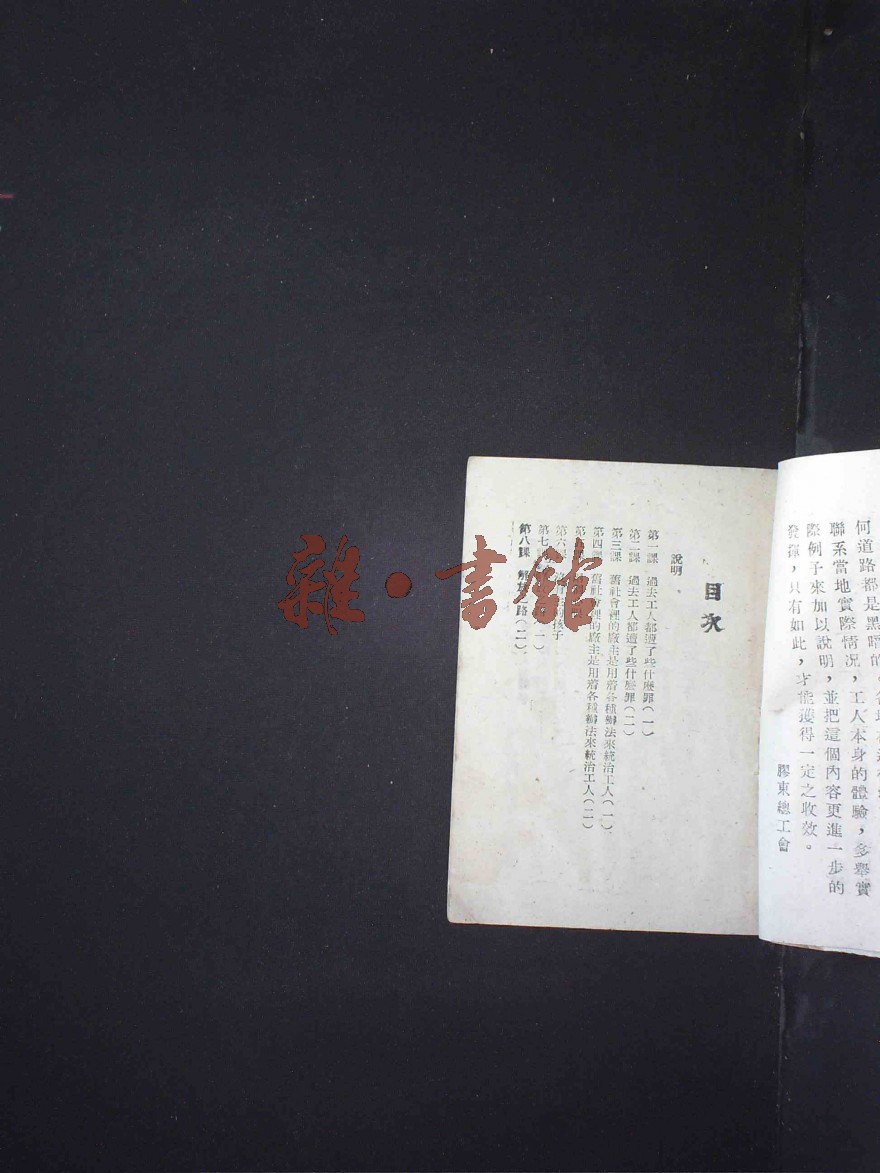 何道路都是黑暗的
聯系當地實際情况，工人本身的體驗，多舉實
際例子來加以說明，並把這個內容更進一步的
發揮，只有如此，才能獲得一定之收效。
膠東總工會
目次
說明
第一課 過去工人都遭了些什麼罪（一）
第二課 過去工人都遭了些什麼罪（二）
第三課 舊社會裡的廠主是用着各種辦法來統治工人（一）
第四課 舊社會裡的廠主是用着各種辦法來統治工人（二）
第
第六 孩子
第七 （一）
第八課 解放之路（二）
雜·書館